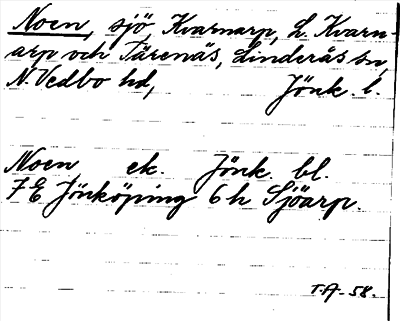 Noen, sjö, Kvarnarp, L. Kvarn-
arp och Tärenäs, Linderås sn,
N. Vedbo hd, Jönk. l.
Noen ek. Jönk. bl.
7E Jönköping 6h Sjöarp.
T.A-58.